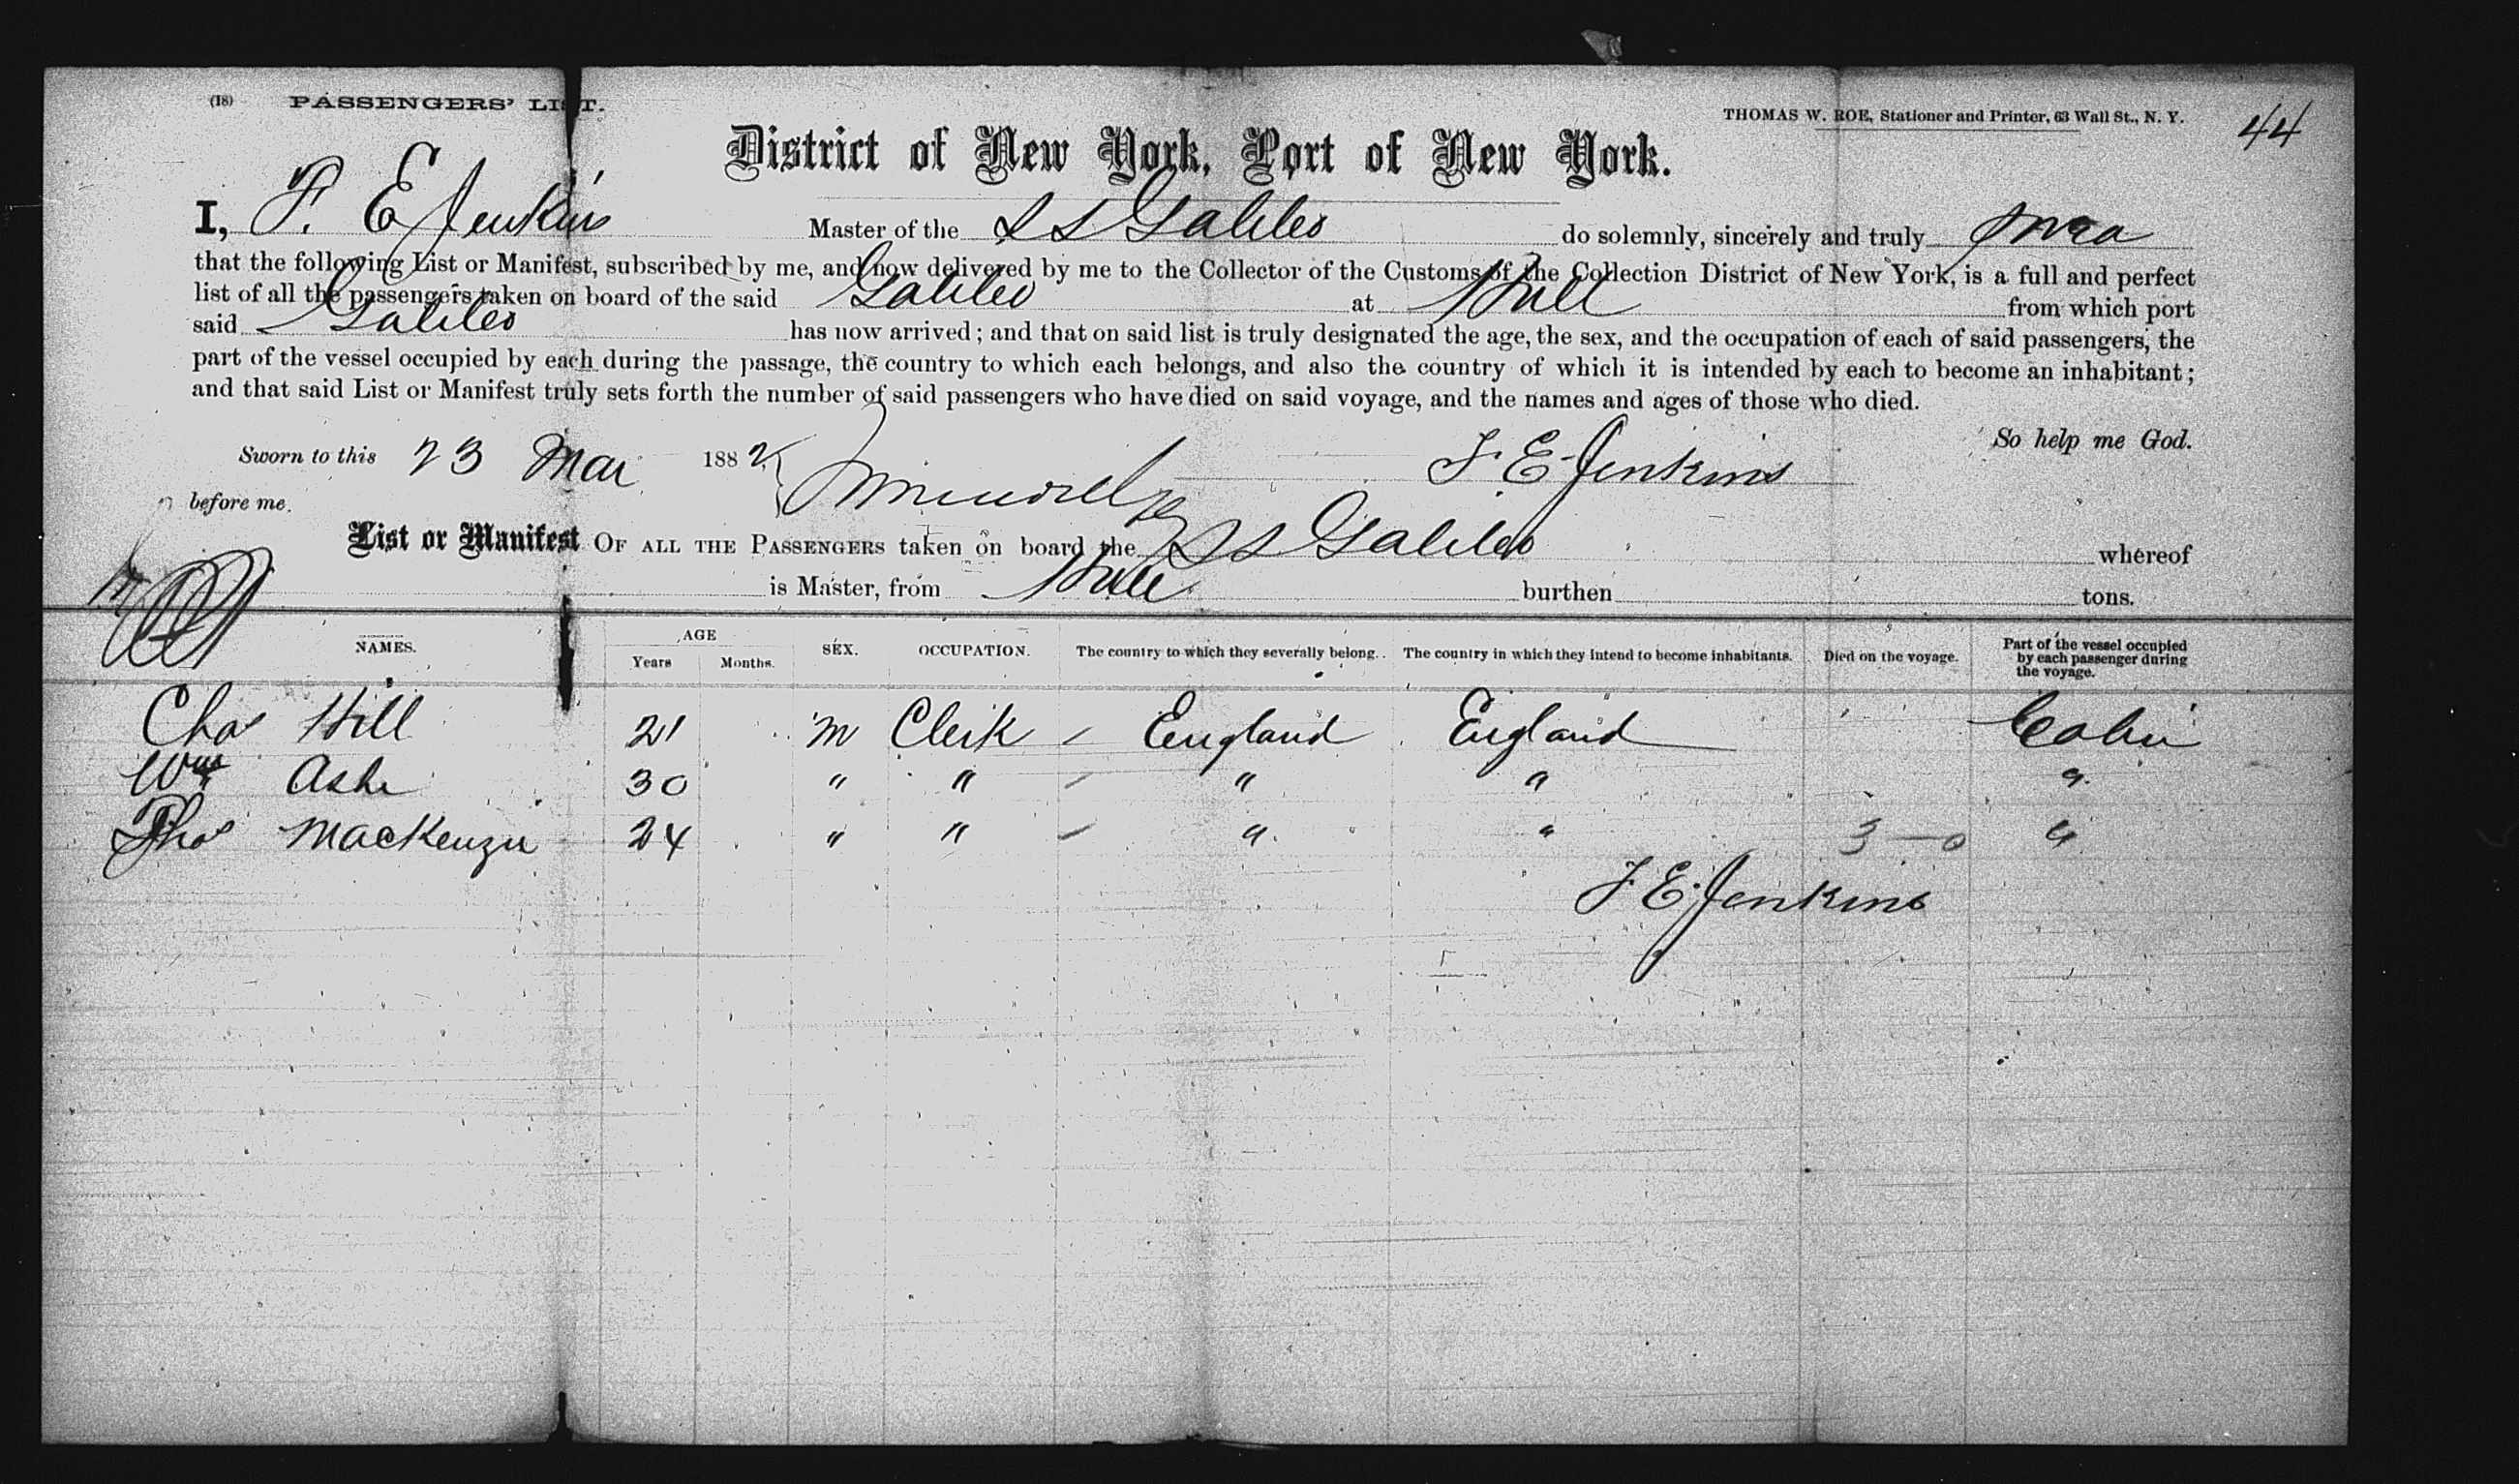 (18) PASSENGERS' LIST.
THOMAS W. ROE, Stationer and Printer, 63 Wall St., N. Y.
44
District of New York, Port of New York.
I, F. E Jenkins Master of the S S Galileo do solemnly, sincerely and truly swear
that the following List or Manifest, subscribed by me, and now delivered by me to the Collector of the Customs of the Collection District of New York, is a full and perfect
list of all the passengers taken on board of the said Galileo at Hull from which port
said Galileo has now arrived; and that on said list is truly designated the age, the sex, and the occupation of each of said passengers, the
part of the vessel occupied by each during the passage, the country to which each belongs, and also the country of which it is intended by each to become an inhabitant;
and that said List or Manifest truly sets forth the number of said passengers who have died on said voyage, and the names and ages of those who died.
So help me God.
Sworn to this 23 Mar 1882 F. E. Jenkins
before me.
List or Manifest OF ALL THE PASSENGERS taken on board the S S Galileo whereof
is Master, from Hull burthen tons.
NAMES. AGE Years Months. SEX. OCCUPATION. The country to which they severally belong. The country in which they intend to become inhabitants. Died on the voyage. Part of the vessel occupied by each passenger during the voyage.
Chas Hill 21 M Clerk - England England Cabin
Wm Ashe 30 " " - " " "
Thos MacKenzie 24 " " - " " 3-0 "
F E Jenkins